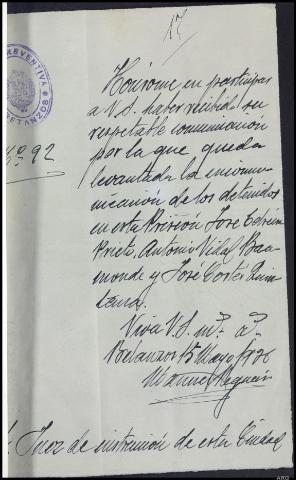 17
PREVENTIVA
BETANZOS
Nº 92
Hónrome en participar
a V.S. haber recibido su
respetable comunicación
por la que queda
levantada la incomu-
nicación de los detenidos
en esta Prisión José Edreira
Prieto, Antonio Vidal Baa-
monde y José Cortés Quin-
tana.
Viva V.S. m.s a.s
Betanzos 15 Mayo 1926
Manuel
Juez de instrucción de esta Ciudad